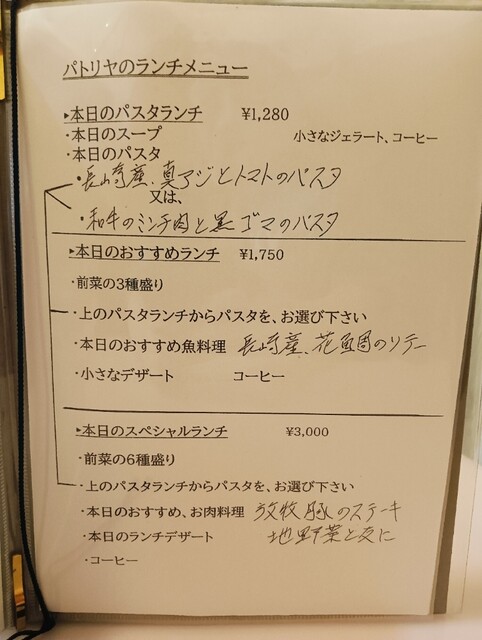 パトリヤのランチメニュー
▸本日のパスタランチ ¥1,280
・本日のスープ 小さなジェラート、コーヒー
・本日のパスタ
・長崎産、真アジとトマトのパスタ
又は、
・和牛のミンチ肉と黒ゴマのパスタ
▸本日のおすすめランチ ¥1,750
・前菜の3種盛り
・上のパスタランチからパスタを、お選び下さい
・本日のおすすめ魚料理 長崎産、花鯛のソテー
・小さなデザート コーヒー
▸本日のスペシャルランチ ¥3,000
・前菜の6種盛り
・上のパスタランチからパスタを、お選び下さい
・本日のおすすめ、お肉料理 放牧豚のステーキ
・本日のランチデザート 地野菜と共に
・コーヒー